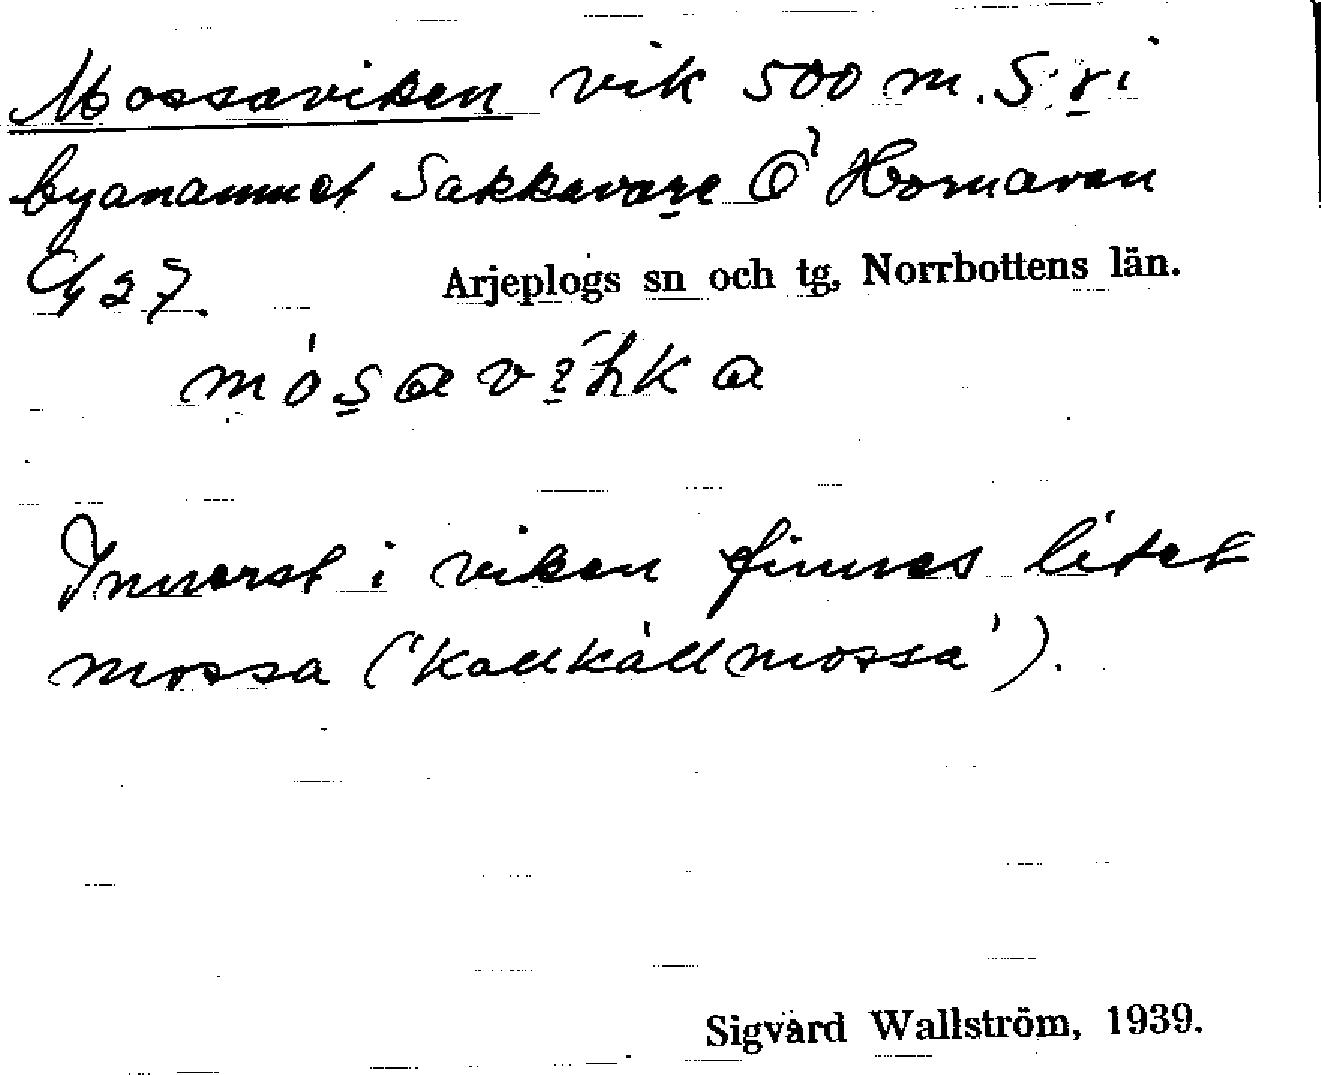 Mossaviken vik 500 m. S. r i
byanamnet Sakkavare Ö Hornavan
27.
Arjeplogs sn och tg, Norrbottens län.
Innerst i viken finnes litet
mossa ('kallkällmossa').
Sigvard Wallström, 1939.